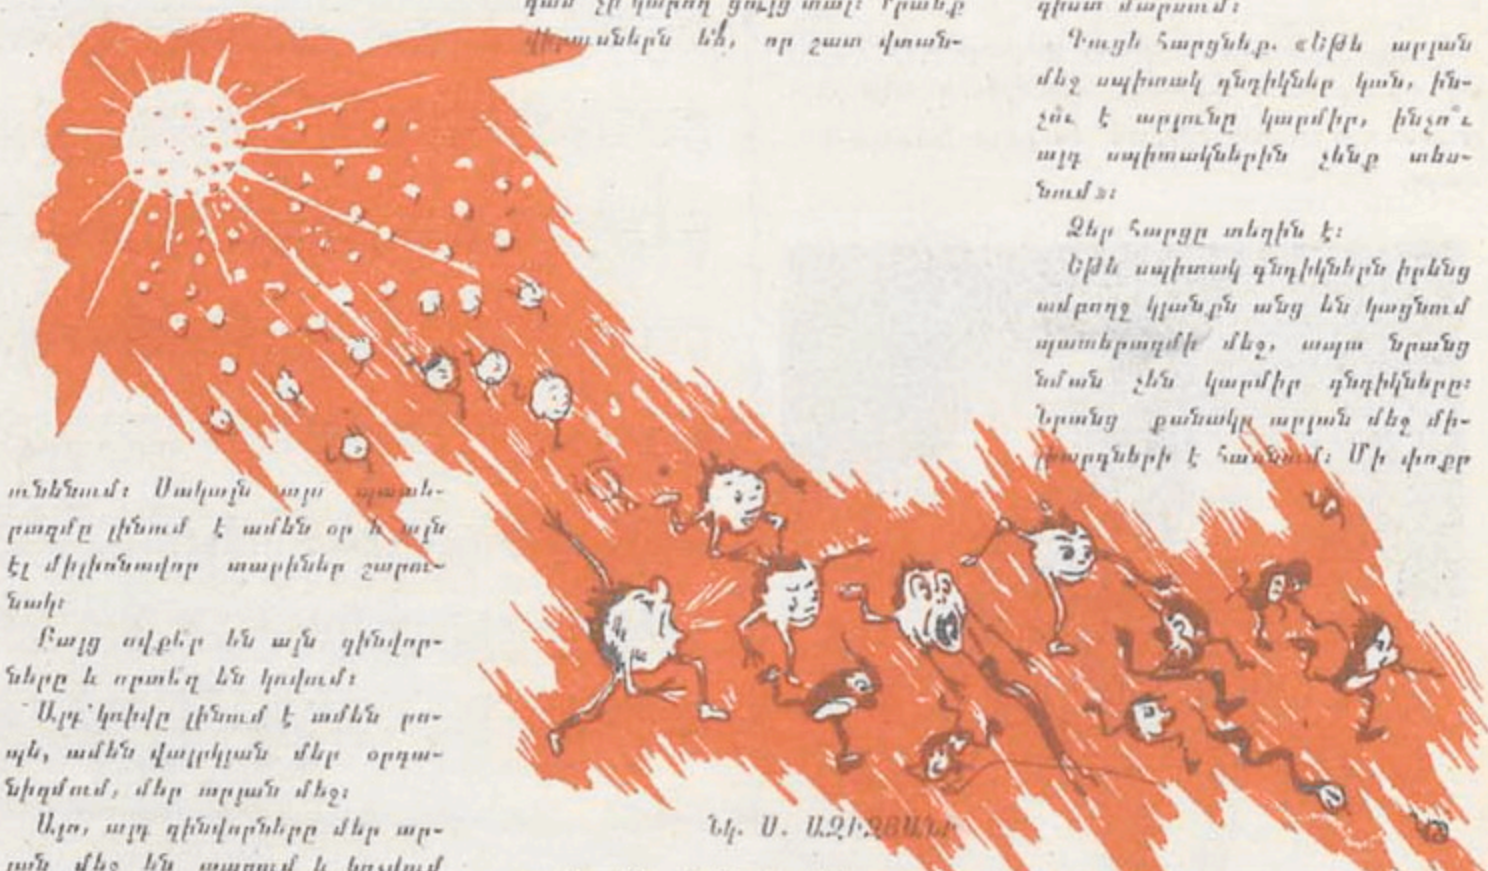 ունենում: Սակայն այս պատե-
րազմը լինում է ամեն օր և այն
էլ միլիոնավոր տարիներ շարու-
նակ:
Բայց ովքե՞ր են այն զինվոր-
ները և որտե՞ղ են կռվում:
Այդ կռիվը լինում է ամեն րո-
պե, ամեն վայրկյան մեր օրգա-
նիզմում, մեր արյան մեջ:
Այո, այդ զինվորները մեր ար-
յան մեջ են ապրում և կռվում
դան չի կարող ցույց տալ: Դրանք
վիրուսներն են, որ շատ վտան-
Գուցե հարցնեք. «Եթե արյան
մեջ սպիտակ գնդիկներ կան, ին-
չո՞ւ է արյունը կարմիր, ինչո՞ւ
այդ սպիտակներին չենք տես-
նում»:
Ձեր հարցը տեղին է:
Եթե սպիտակ գնդիկներն իրենց
ամբողջ կյանքն անց են կացնում
պատերազմի մեջ, ապա նրանց
նման չեն կարմիր գնդիկները:
Նրանց քանակը արյան մեջ մի-
լիարդների է հասնում: Մի փոքր
Նկ. Ս. ԱԶԻԶՅԱՆԻ